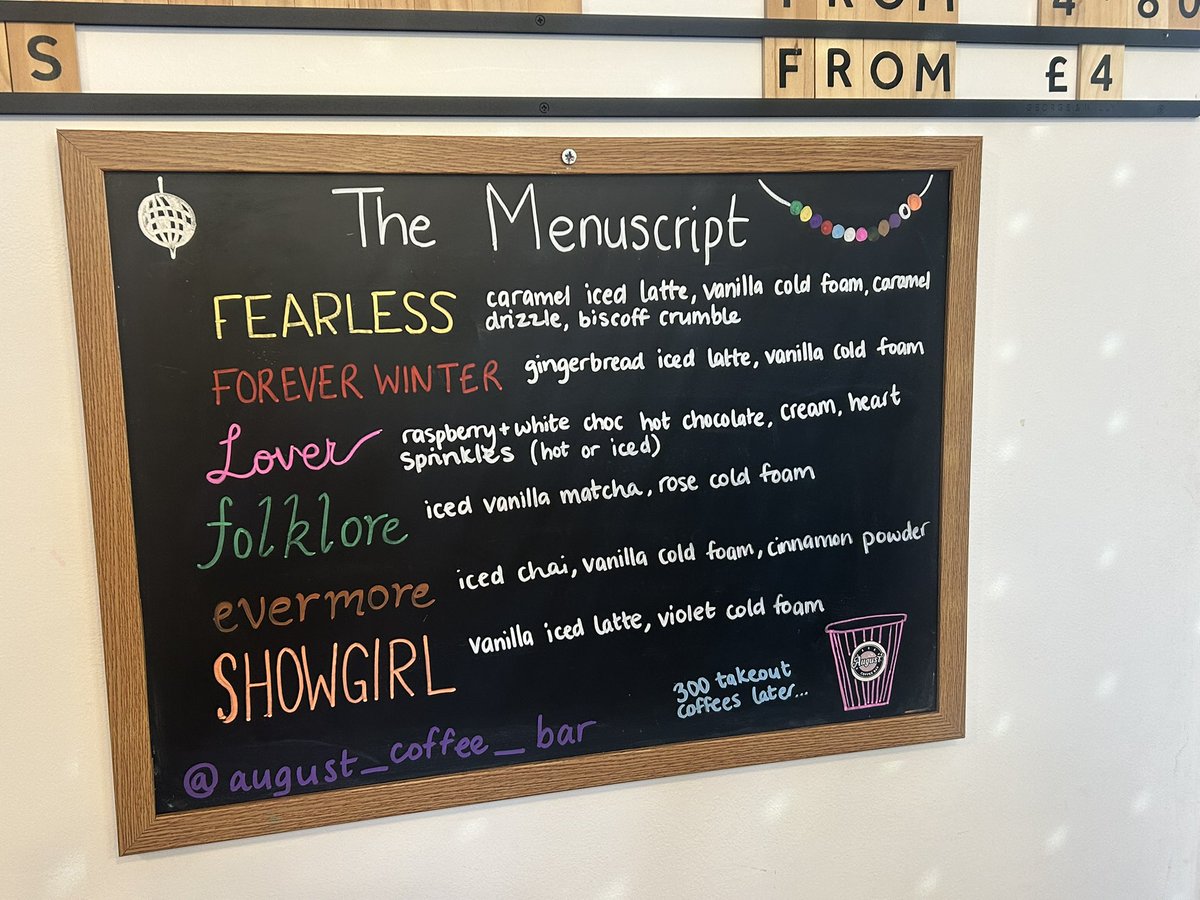 S
FROM 4.80
FROM £4
The Menuscript
FEARLESS caramel iced latte, vanilla cold foam, caramel
drizzle, biscoff crumble
FOREVER WINTER gingerbread iced latte, vanilla cold foam
Lover raspberry + white choc hot chocolate, cream, heart
sprinkles (hot or iced)
folklore iced vanilla matcha, rose cold foam
evermore iced chai, vanilla cold foam, cinnamon powder
SHOWGIRL vanilla iced latte, violet cold foam
300 takeout
coffees later...
August
@august_coffee_bar